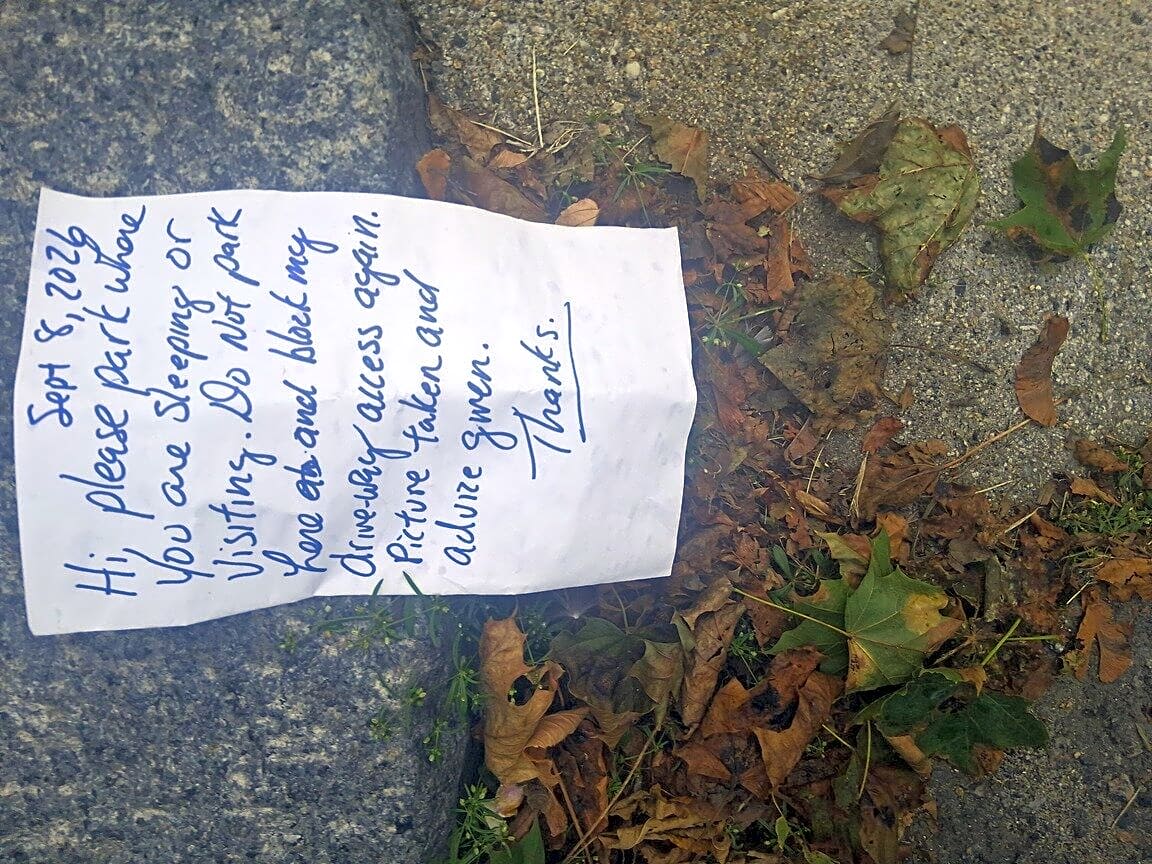 Sept 8, 2026
Hi, please park where
you are sleeping or
visiting. Do Not park
here and block my
drive-way access again.
Picture taken and
advize given.
Thanks.